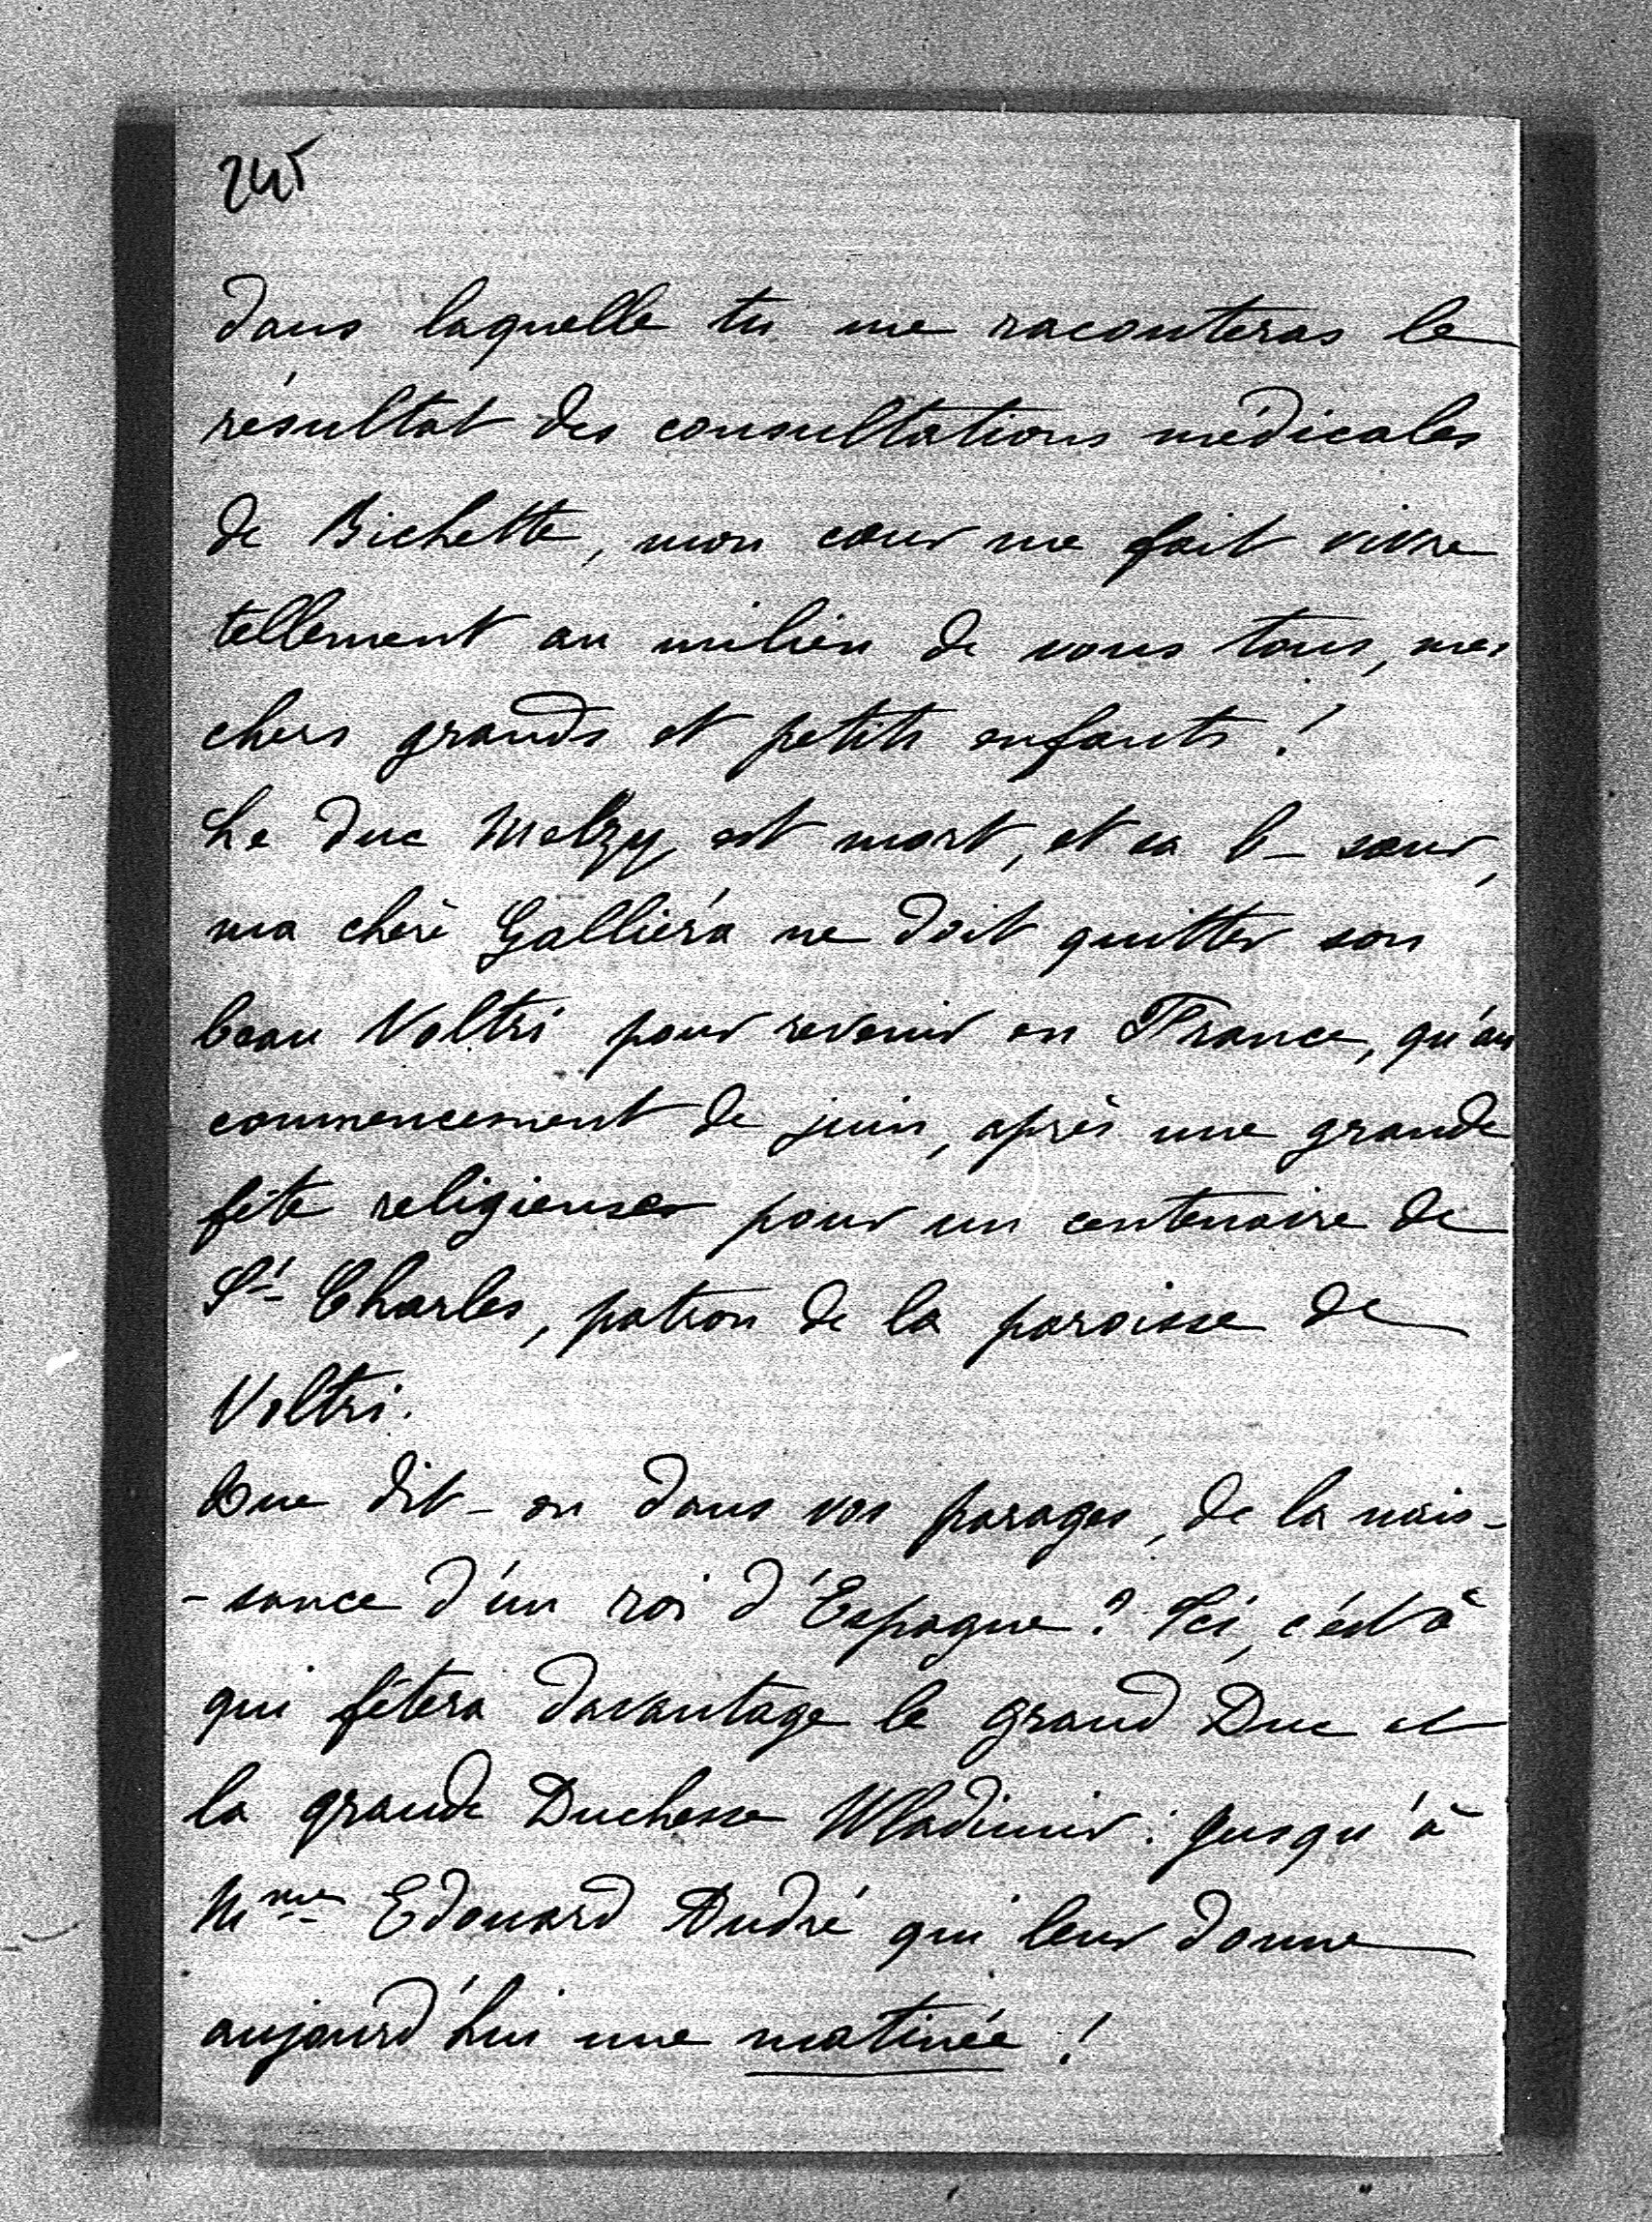 245
dans laquelle tu me raconteras le
résultat des consultations médicales
de Bichette, mon cœur me fait vivre
tellement au milieu de vous tous, mes
chers grands et petits enfants !
Le duc Melzy est mort, et sa b- sœur,
ma chère Galliéra ne doit quitter son
beau Voltri pour revenir en France, qu'au
commencement de juin, après une grande
fête religieuse pour un centenaire de
St- Charles, patron de la paroisse de
Voltri.
Que dit-on dans vos parages, de la nais-
-sance d'un roi d'Espagne ? Ici, c'est à
qui fêtera davantage le grand Duc et
la grande Duchesse Wladimir : jusqu'à
Mme Edouard André qui leur donne
aujourd'hui une matinée !